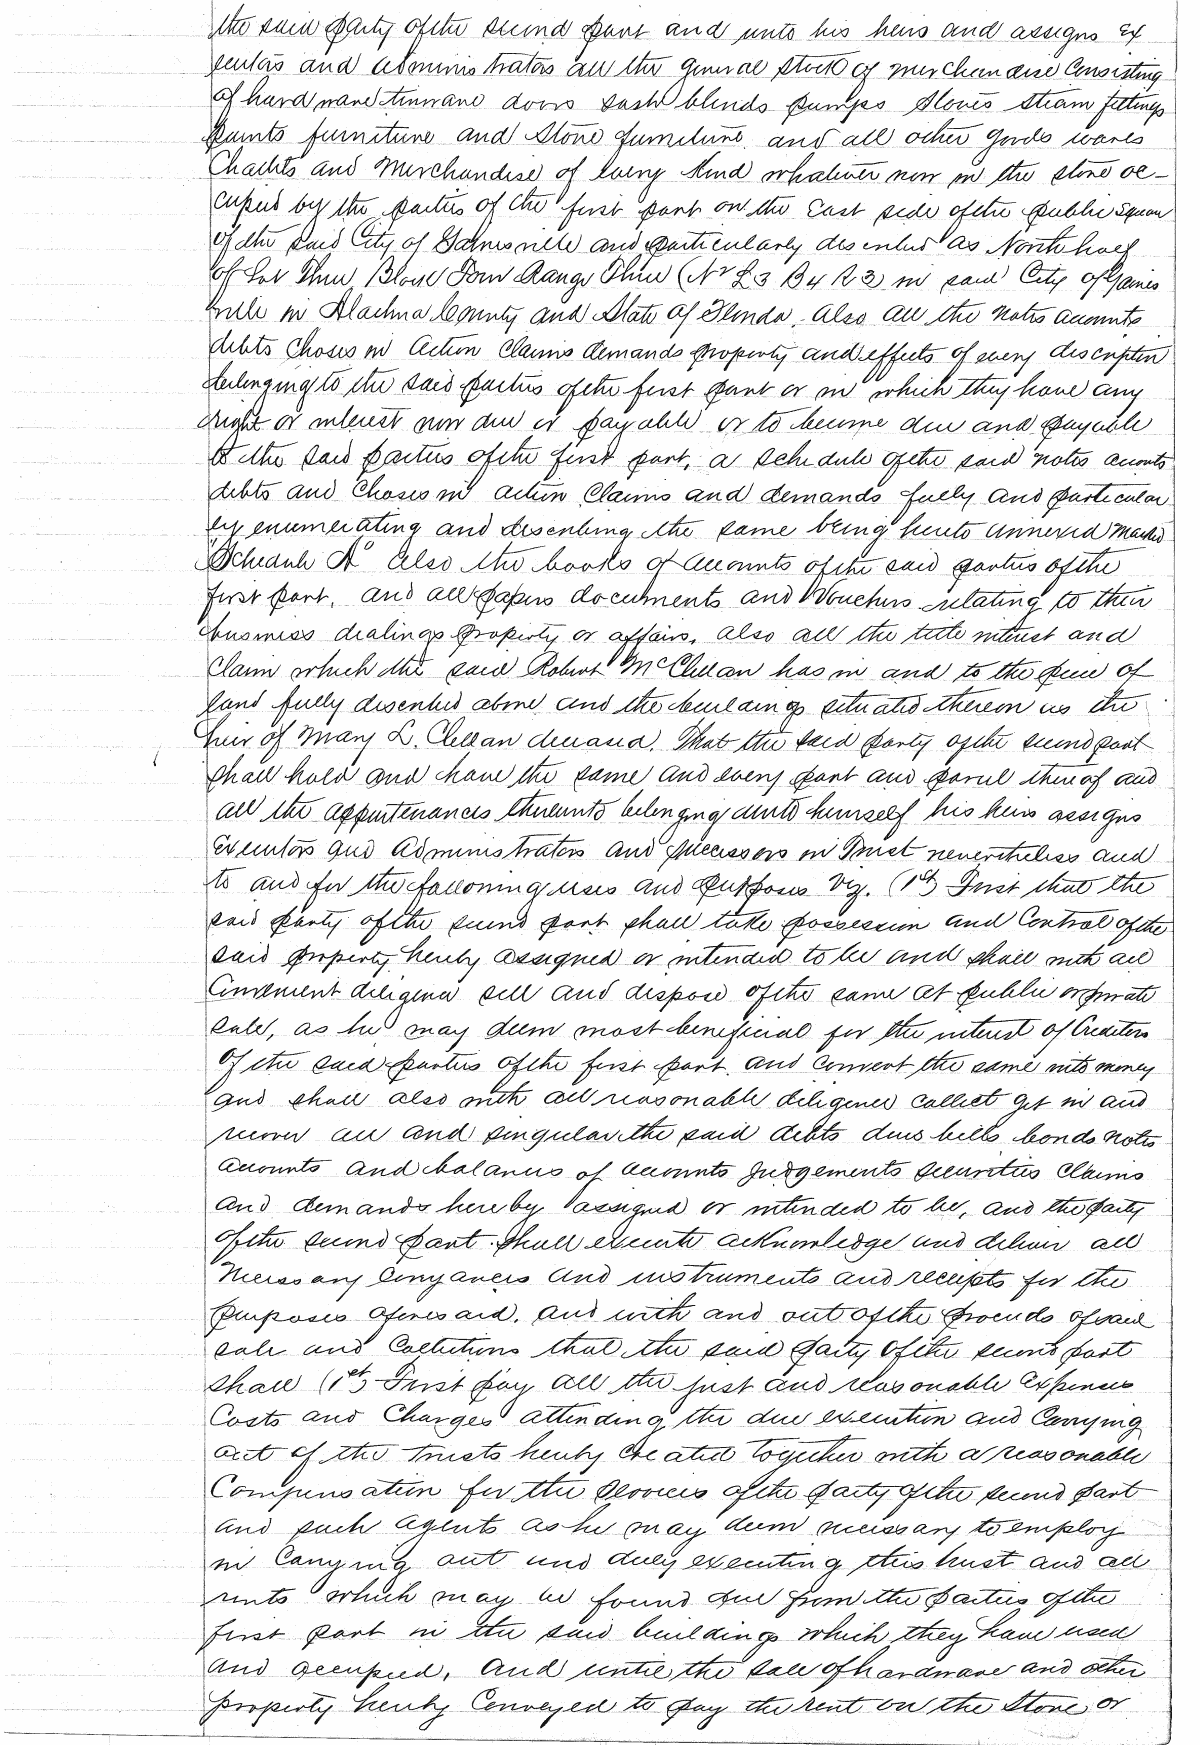 the said party of the second part and unto his heirs and assigns Ex
ecutors and Administrators all the General Stock of Merchandise Consisting
of hardware tinware doors sash blinds pumps stoves steam fittings
paints furniture and Store furniture and all other goods wares
Chattels and Merchandise of every Kind whatever now in the store oc-
cupied by the parties of the first part on the East side of the public Square
of the said City of Gainesville and particularly described as North half
of Lot Three Block Four Range Three (N½ L3 B4 R3) in said City of Gaines
ville in Alachua County and State of Florida. Also all the notes accounts
debts Choses in Action Claims demands property and effects of every description
belonging to the said parties of the first part or in which they have any
right or interest now due or payable or to become due and payable
to the said parties of the first part, a schedule of the said notes accounts
debts and Choses in action Claims and demands fully and particular
ly enumerating and describing the same being hereto annexed Marked
"Schedule A" also the books of accounts of the said parties of the
first part, and all papers documents and Vouchers relating to their
business dealings property or affairs, also all the title interest and
Claim which the said Robert McClellan has in and to the piece of
land fully described above and the buildings situated thereon as the
heir of Mary L. Clellan deceased. That the said party of the second part
shall hold and have the same and every part and parcel thereof and
all the appurtenances thereunto belonging unto himself his heirs assigns
executors and Administrators and Successors in Trust nevertheless and
to and for the following uses and purposes Viz. (1st) First that the
said party of the second part shall take possession and Control of the
said property hereby assigned or intended to be and shall with all
Convenient diligence sell and dispose of the same at public or private
sale, as he may deem most beneficial for the interest of Creditors
of the said parties of the first part and convert the same into money
and shall also with all reasonable diligence collect get in and
recover all and singular the said debts dues bills bonds notes
accounts and balances of accounts Judgements Securities Claims
and demands hereby assigned or intended to be, and the party
of the second part shall execute acknowledge and deliver all
Necessary Conyances and instruments and receipts for the
purposes aforesaid, and with and out of the proceeds of said
sale and Collections that the said party of the second part
shall (1st) First pay all the just and reasonable expenses
Costs and Charges attending the due execution and Carrying
out of the trusts hereby created together with a reasonable
Compensation for the services of the party of the second part
and such agents as he may deem necessary to employ
in Carrying out and duly executing this trust and all
rents which may be found due from the parties of the
first part in the said buildings which they have used
and occupied, and until the sale of hardware and other
property hereby Conveyed to pay the rent on the Store or